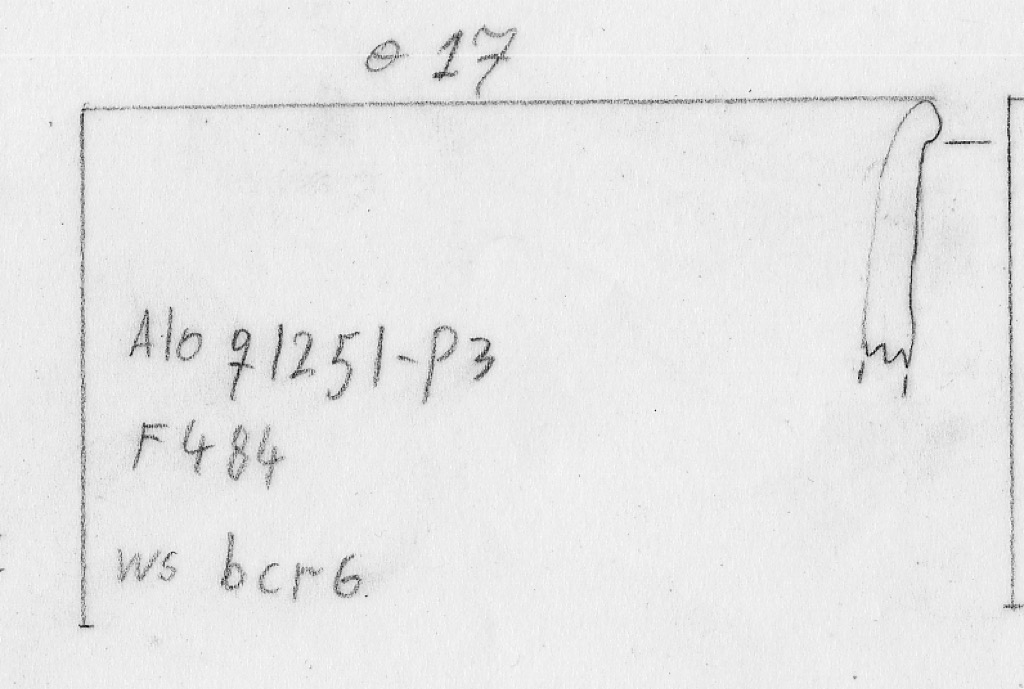 ⌀ 17
A10 91251-P3
F 484
WS bcr6